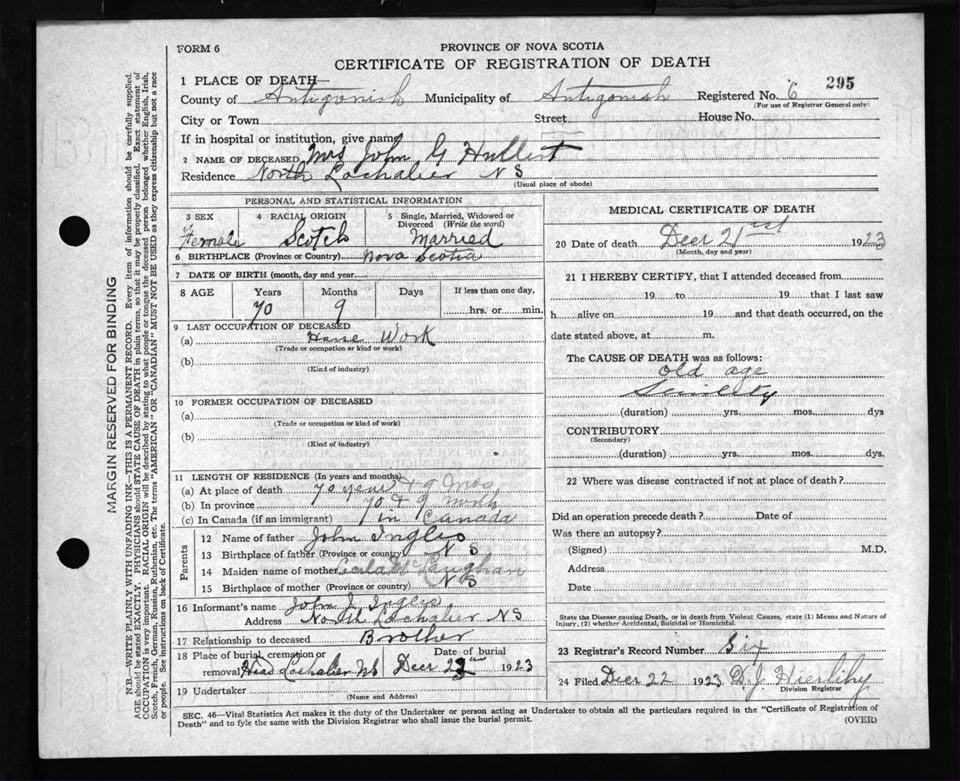 FORM 6
PROVINCE OF NOVA SCOTIA
CERTIFICATE OF REGISTRATION OF DEATH
295
1 PLACE OF DEATH—
County of Antigonish Municipality of Antigonish Registered No. 6
(For use of Registrar General only)
City or Town Street House No.
If in hospital or institution, give name
2 NAME OF DECEASED Mrs John G
Residence North Lochaber N S
(Usual place of abode)
PERSONAL AND STATISTICAL INFORMATION
3 SEX 4 RACIAL ORIGIN 5 Single, Married, Widowed or Divorced (Write the word)
Female Scotch Married
6 BIRTHPLACE (Province or Country) Nova Scotia
7 DATE OF BIRTH (month, day and year)
8 AGE Years Months Days If less than one day,
70 9 hrs. or min.
9 LAST OCCUPATION OF DECEASED
(a) Work
(Trade or occupation or kind or work)
(b)
(Kind of industry)
10 FORMER OCCUPATION OF DECEASED
(a)
(Trade or occupation or kind of work)
(b)
(Kind of industry)
11 LENGTH OF RESIDENCE (In years and months)
(a) At place of death 70 years & 9 Mos
(b) In province 70 & 9 month
(c) In Canada (if an immigrant) in Canada
Parents
12 Name of father John Ingles
13 Birthplace of father (Province or country) N S
14 Maiden name of mother
15 Birthplace of mother (Province or country) N S
16 Informant's name John J Ingles
Address North Lochaber N S
17 Relationship to deceased Brother
18 Place of burial, cremation or removal Head Lochaber NS Date of burial Decr 1923
19 Undertaker
(Name and Address)
MEDICAL CERTIFICATE OF DEATH
20 Date of death Decr 21st 1923
(Month, day and year)
21 I HEREBY CERTIFY, that I attended deceased from
19 to 19 that I last saw
h alive on 19 and that death occurred, on the
date stated above, at m.
The CAUSE OF DEATH was as follows:
old age
(duration) yrs. mos. dys
CONTRIBUTORY
(Secondary)
(duration) yrs. mos. dys.
22 Where was disease contracted if not at place of death?
Did an operation precede death? Date of
Was there an autopsy?
(Signed) M.D.
Address
Date
State the Disease causing Death, or in death from Violent Causes, state (1) Means and Nature of
Injury, (2) whether Accidental, Suicidal or Homicidal.
23 Registrar's Record Number Six
24 Filed Decr 22 1923 D. J. Hierlihy
Division Registrar
SEC. 46—Vital Statistics Act makes it the duty of the Undertaker or person acting as Undertaker to obtain all the particulars required in the "Certificate of Registration of
Death" and to fyle the same with the Division Registrar who shall issue the burial permit.
(OVER)
MARGIN RESERVED FOR BINDING
N.B.—WRITE PLAINLY WITH UNFADING INK—THIS IS A PERMANENT RECORD. Every item of information should be carefully supplied.
AGE should be stated EXACTLY. PHYSICIANS should STATE CAUSE OF DEATH in plain terms, so that it may be properly classified. Exact statement of
OCCUPATION is very important. RACIAL ORIGIN will be described by stating to what people or tongue the deceased person belonged whether English, Irish,
Scotch, French, German, Russian, Ruthenian, etc. The terms "AMERICAN" OR "CANADIAN" MUST NOT BE USED as they express citizenship but not a race
or people. See instructions on back of Certificate.